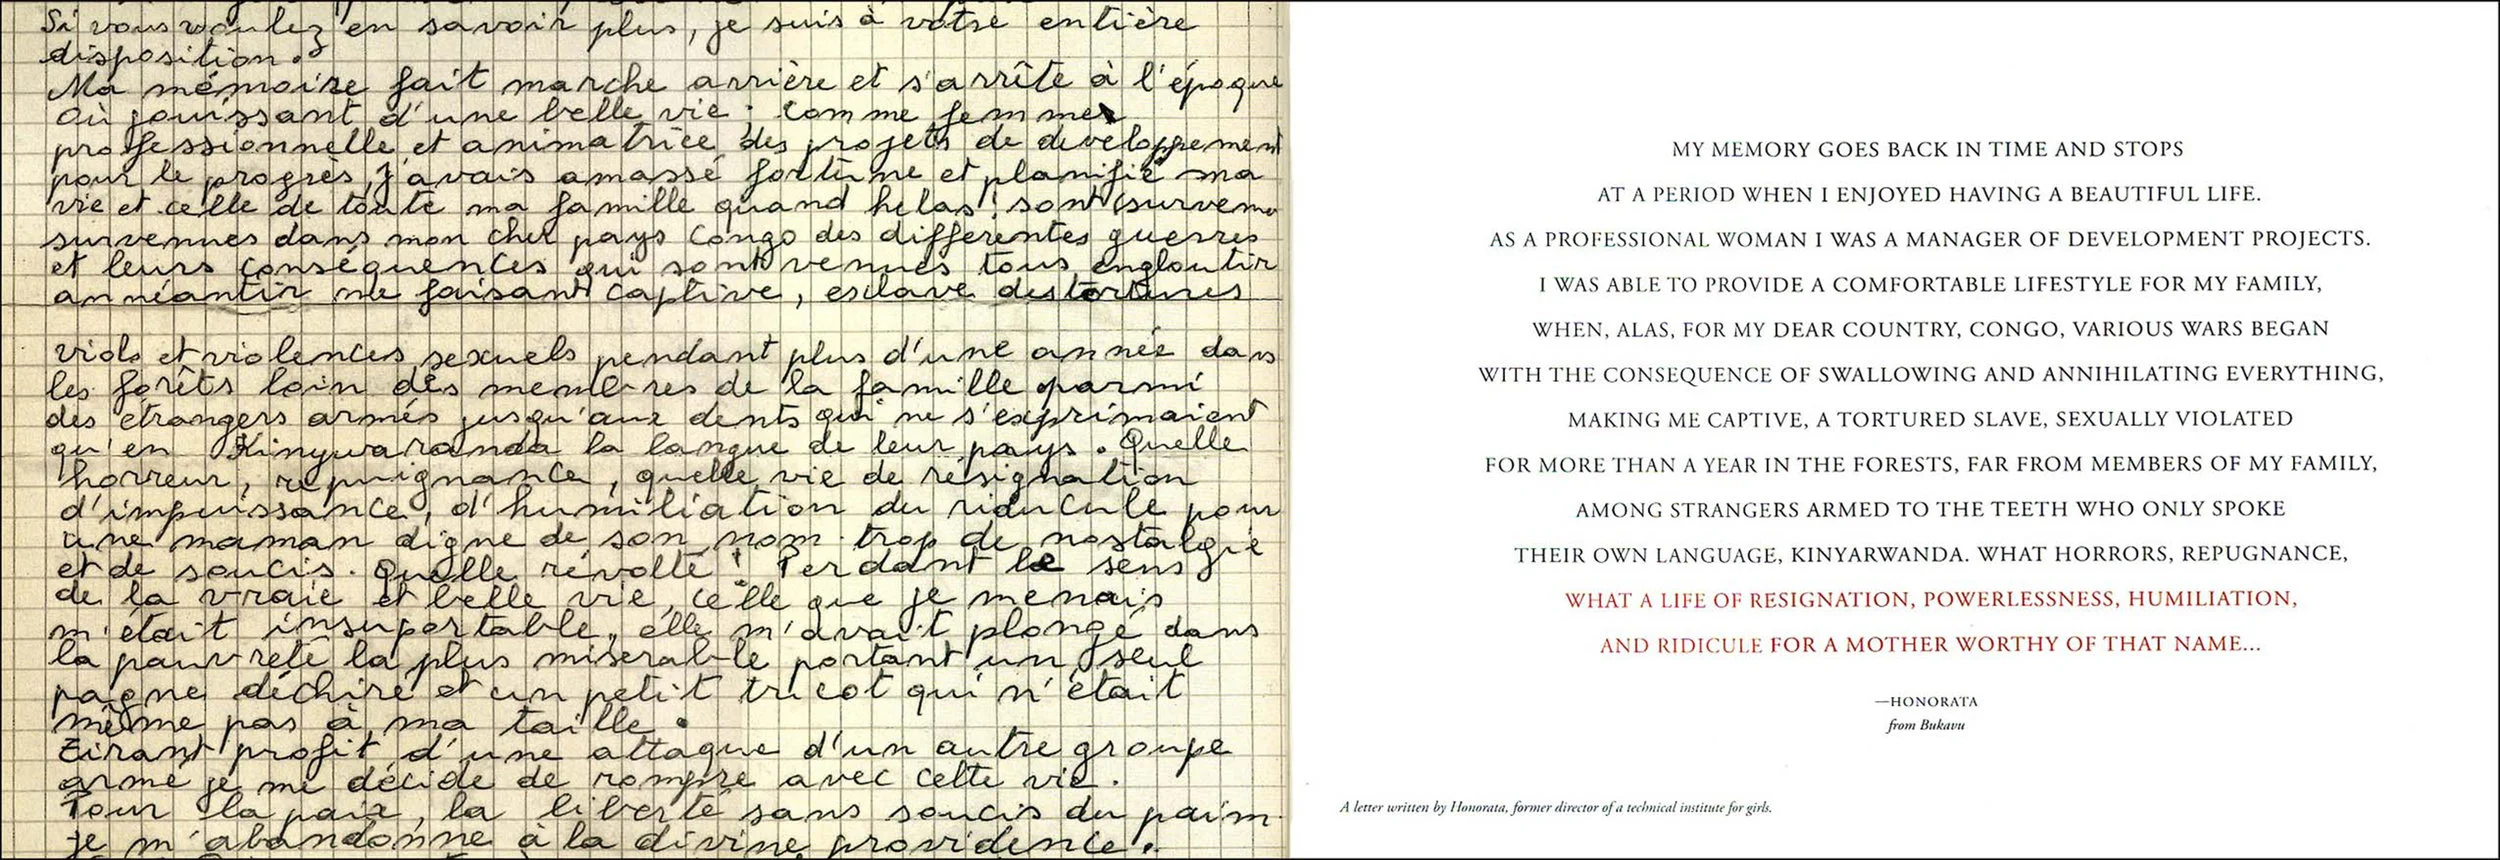 Si vous voulez en savoir plus, je suis à votre entière
disposition.
Ma mémoire fait marche arrière et s'arrête à l'époque
où jouissant d'une belle vie ; comme femmes
professionnelle et animatrice des projets de developpement
pour le progrès, j'avais amassé fortune et planifié ma
vie et celle de toute ma famille quand helas ! sont (survenu
survennues dans mon cher pays Congo des differentes guerres
et leurs conséquences qui sont vennues tous engloutir
annéantir me faisant captive, esclave des tortures
viols et violences sexuels pendant plus d'une année dans
les forêts loin des membres de la famille parmi
des étrangers armés jusqu'aux dents qui ne s'exprimaient
qu'en Kinywaranda la langue de leur pays. Quelle
horreur, repuignance, quelle vie de résignation
d'impuissance, d'humiliation du riducule pour
une maman digne de son nom trop de nostalgie
et de soucis. Quelle révolte ! Perdant le sens
de la vraie et belle vie, celle que je menais
m'était insuportable, elle m'avait plongé dans
la pauvreté la plus miserable portant un seul
pagne déchiré et un petit tricot qui n'était
même pas à ma taille.
Tirant profit d'une attaque d'un autre groupe
armé je me décide de rompre avec cette vie.
Pour la paix, la liberté sans soucis du paim
je m'abandonne à la divine providence.
MY MEMORY GOES BACK IN TIME AND STOPS
AT A PERIOD WHEN I ENJOYED HAVING A BEAUTIFUL LIFE.
AS A PROFESSIONAL WOMAN I WAS A MANAGER OF DEVELOPMENT PROJECTS.
I WAS ABLE TO PROVIDE A COMFORTABLE LIFESTYLE FOR MY FAMILY,
WHEN, ALAS, FOR MY DEAR COUNTRY, CONGO, VARIOUS WARS BEGAN
WITH THE CONSEQUENCE OF SWALLOWING AND ANNIHILATING EVERYTHING,
MAKING ME CAPTIVE, A TORTURED SLAVE, SEXUALLY VIOLATED
FOR MORE THAN A YEAR IN THE FORESTS, FAR FROM MEMBERS OF MY FAMILY,
AMONG STRANGERS ARMED TO THE TEETH WHO ONLY SPOKE
THEIR OWN LANGUAGE, KINYARWANDA. WHAT HORRORS, REPUGNANCE,
WHAT A LIFE OF RESIGNATION, POWERLESSNESS, HUMILIATION,
AND RIDICULE FOR A MOTHER WORTHY OF THAT NAME...
—HONORATA
from Bukavu
A letter written by Honorata, former director of a technical institute for girls.